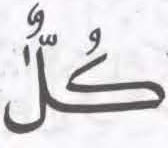 كُلٌّ